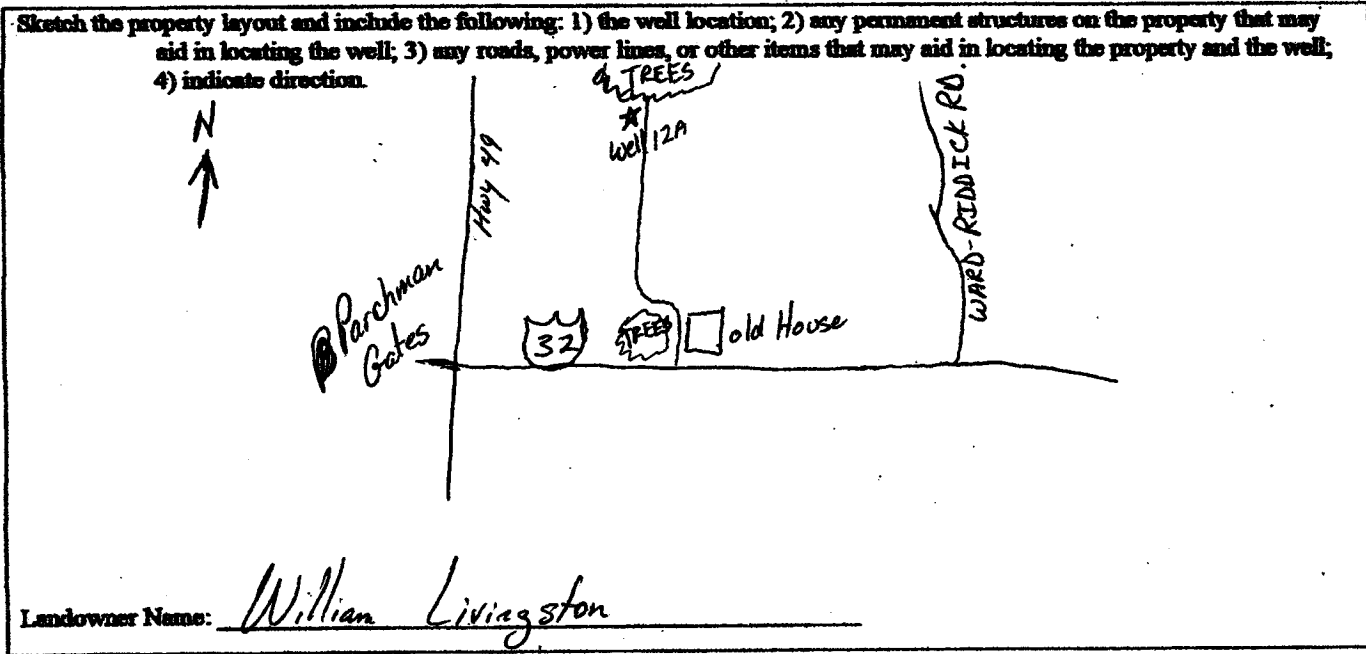 Sketch the property layout and include the following: 1) the well location; 2) any permanent structures on the property that may
aid in locating the well; 3) any roads, power lines, or other items that may aid in locating the property and the well;
4) indicate direction.
TREES
N
Well 12A
Hwy 49
WARD-RIDDICK RD.
Parchman
Gates
32
TREES
old House
Landowner Name: William Livingston